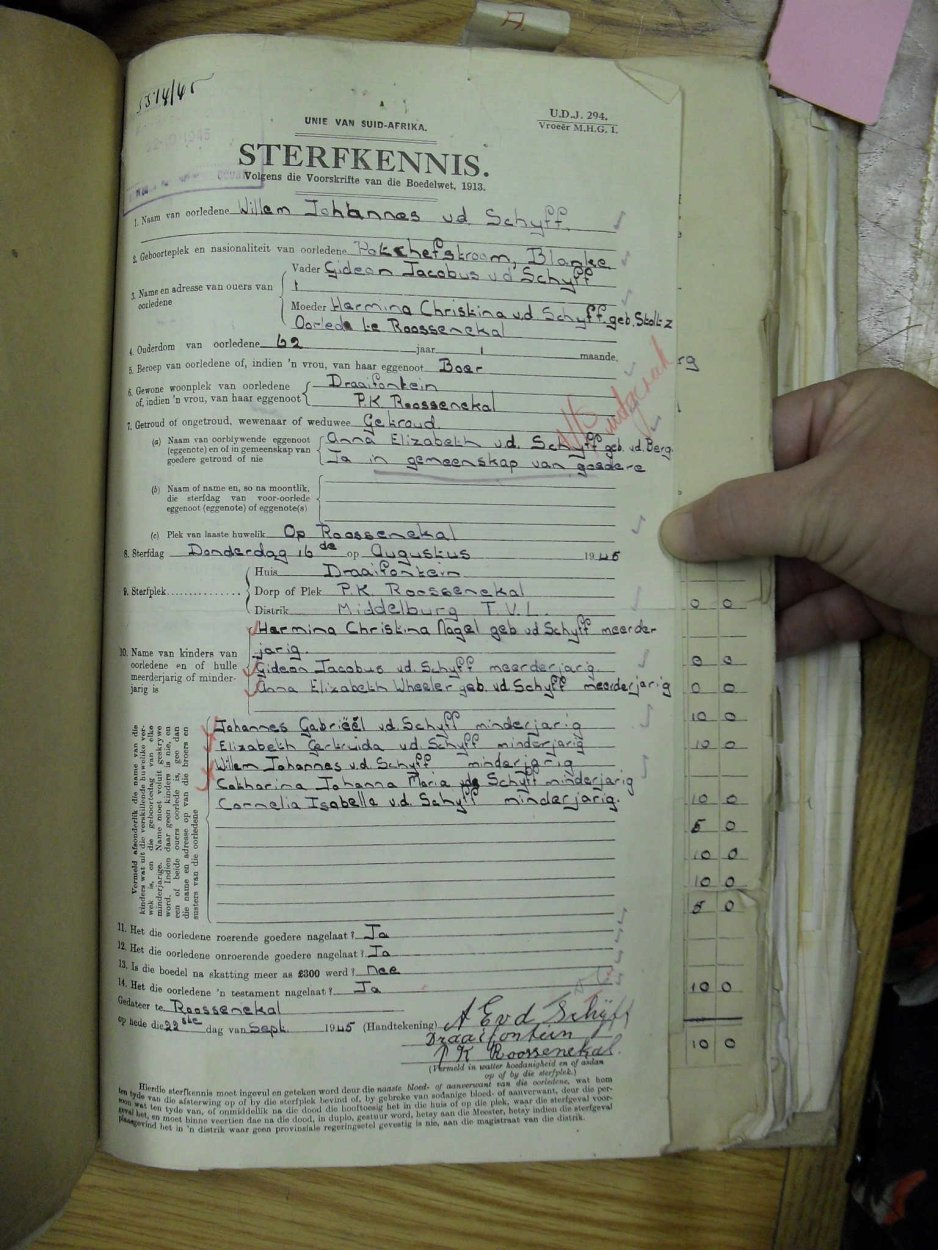 A
5514/45
U.D.J. 294.
Vroeër M.H.G. 1.
UNIE VAN SUID-AFRIKA.
STERFKENNIS.
Volgens die Voorskrifte van die Boedelwet, 1913.
1. Naam van oorledene Willem Johannes vd Schyff.
2. Geboorteplek en nasionaliteit van oorledene Potchefstroom, Blanke
3. Name en adresse van ouers van oorledene
Vader Gideon Jacobus v.d Schyff
Moeder Harmina Christina v.d Schyff geb. Stoltz
Oorlede te Roossenekal
4. Ouderdom van oorledene 62 jaar 1 maande.
5. Beroep van oorledene of, indien 'n vrou, van haar eggenoot Boer
6. Gewone woonplek van oorledene of, indien 'n vrou, van haar eggenoot
Draaifontein
P.K. Roossenekal
7. Getroud of ongetroud, wewenaar of weduwee Getroud.
(a) Naam van oorblywende eggenoot (eggenote) en of in gemeenskap van goedere getroud of nie
Anna Elizabeth v.d. Schyff geb. vd. Berg.
Ja in gemeenskap van goedere
(b) Naam of name en, so na moontlik, die sterfdag van voor-oorlede eggenoot (eggenote) of eggenote(s)
(c) Plek van laaste huwelik Op Roossenekal
8. Sterfdag Donderdag 16de op Augustus 1945
9. Sterfplek
Huis Draaifontein
Dorp of Plek P.K. Roossenekal
Distrik Middelburg T.V.L.
10. Name van kinders van oorledene en of hulle meerderjarig of minderjarig is
Harmina Christina Nagel geb vd Schyff meerder-
jarig.
Gideon Jacobus vd. Schyff meerderjarig.
Anna Elizabeth Wheeler geb. vd Schyff meerderjarig
Vermeld afsonderlik die name van die kinders wat uit die verskillende huwelike verwek is, en die geboortedag van elke minderjarige. Name moet voluit geskrywe word. Indien daar geen kinders is nie, en een of beide ouers oorlede is, gee dan die name en adresse op van die broers en susters van die oorledene
Johannes Gabriëël vd Schyff minderjarig
Elizabeth Gertruida vd. Schyff minderjarig
Willem Johannes vd. Schyff minderjarig
Catharina Johanna Maria vd Schyff minderjarig
Cornelia Isabella v.d. Schyff minderjarig.
11. Het die oorledene roerende goedere nagelaat? Ja
12. Het die oorledene onroerende goedere nagelaat? Ja
13. Is die boedel na skatting meer as £300 werd? nee
14. Het die oorledene 'n testament nagelaat? Ja
Gedateer te Roossenekal
op hede die 22ste dag van Sept. 1945 (Handtekening) A E vd Schijff
Draaifontein
P.K Roossenekal.
(Vermeld in watter hoedanigheid en of asdan op of by die sterfplek.)
Hierdie sterfkennis moet ingevul en geteken word deur die naaste bloed- of aanverwant van die oorledene, wat hom
ten tyde van die afsterwing op of by die sterfplek bevind of, by gebreke van sodanige bloed- of aanverwant, deur die per-
soon wat ten tyde van, of onmiddellik na die dood die hooftoesig het in die huis of op die plek, waar die sterfgeval voor-
geval het, en moet binne veertien dae na die dood, in duplo, gestuur word, hetsy aan die Meester, hetsy indien die sterfgeval
plaasgevind het in 'n distrik waar geen provinsiale regeringsetel gevestig is nie, aan die magistraat van die distrik.
rg
0 0
0 0
0 0
10 0
10 0
10 0
5 0
10 0
10 0
5 0
10 0
10 0